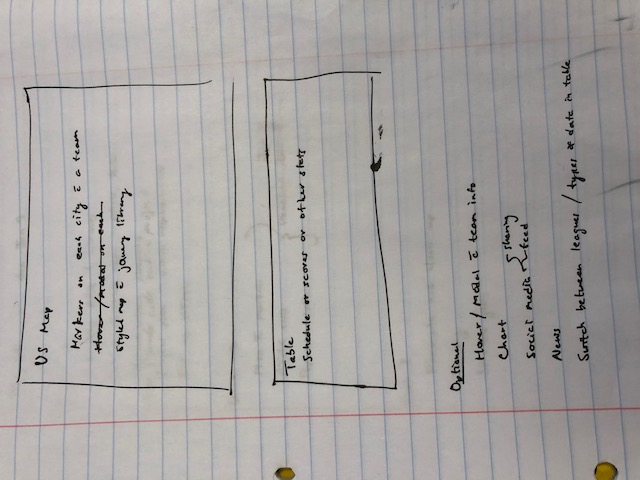 US Map
Markers on each city c̄ a team
Hover / Modal on each
Styled map c̄ jquery library
Table
Schedule or scores or other stats
Optional
Hover / Modal c̄ team info
Chart
Social media { sharing
feed
News
Switch between leagues / types of data in table